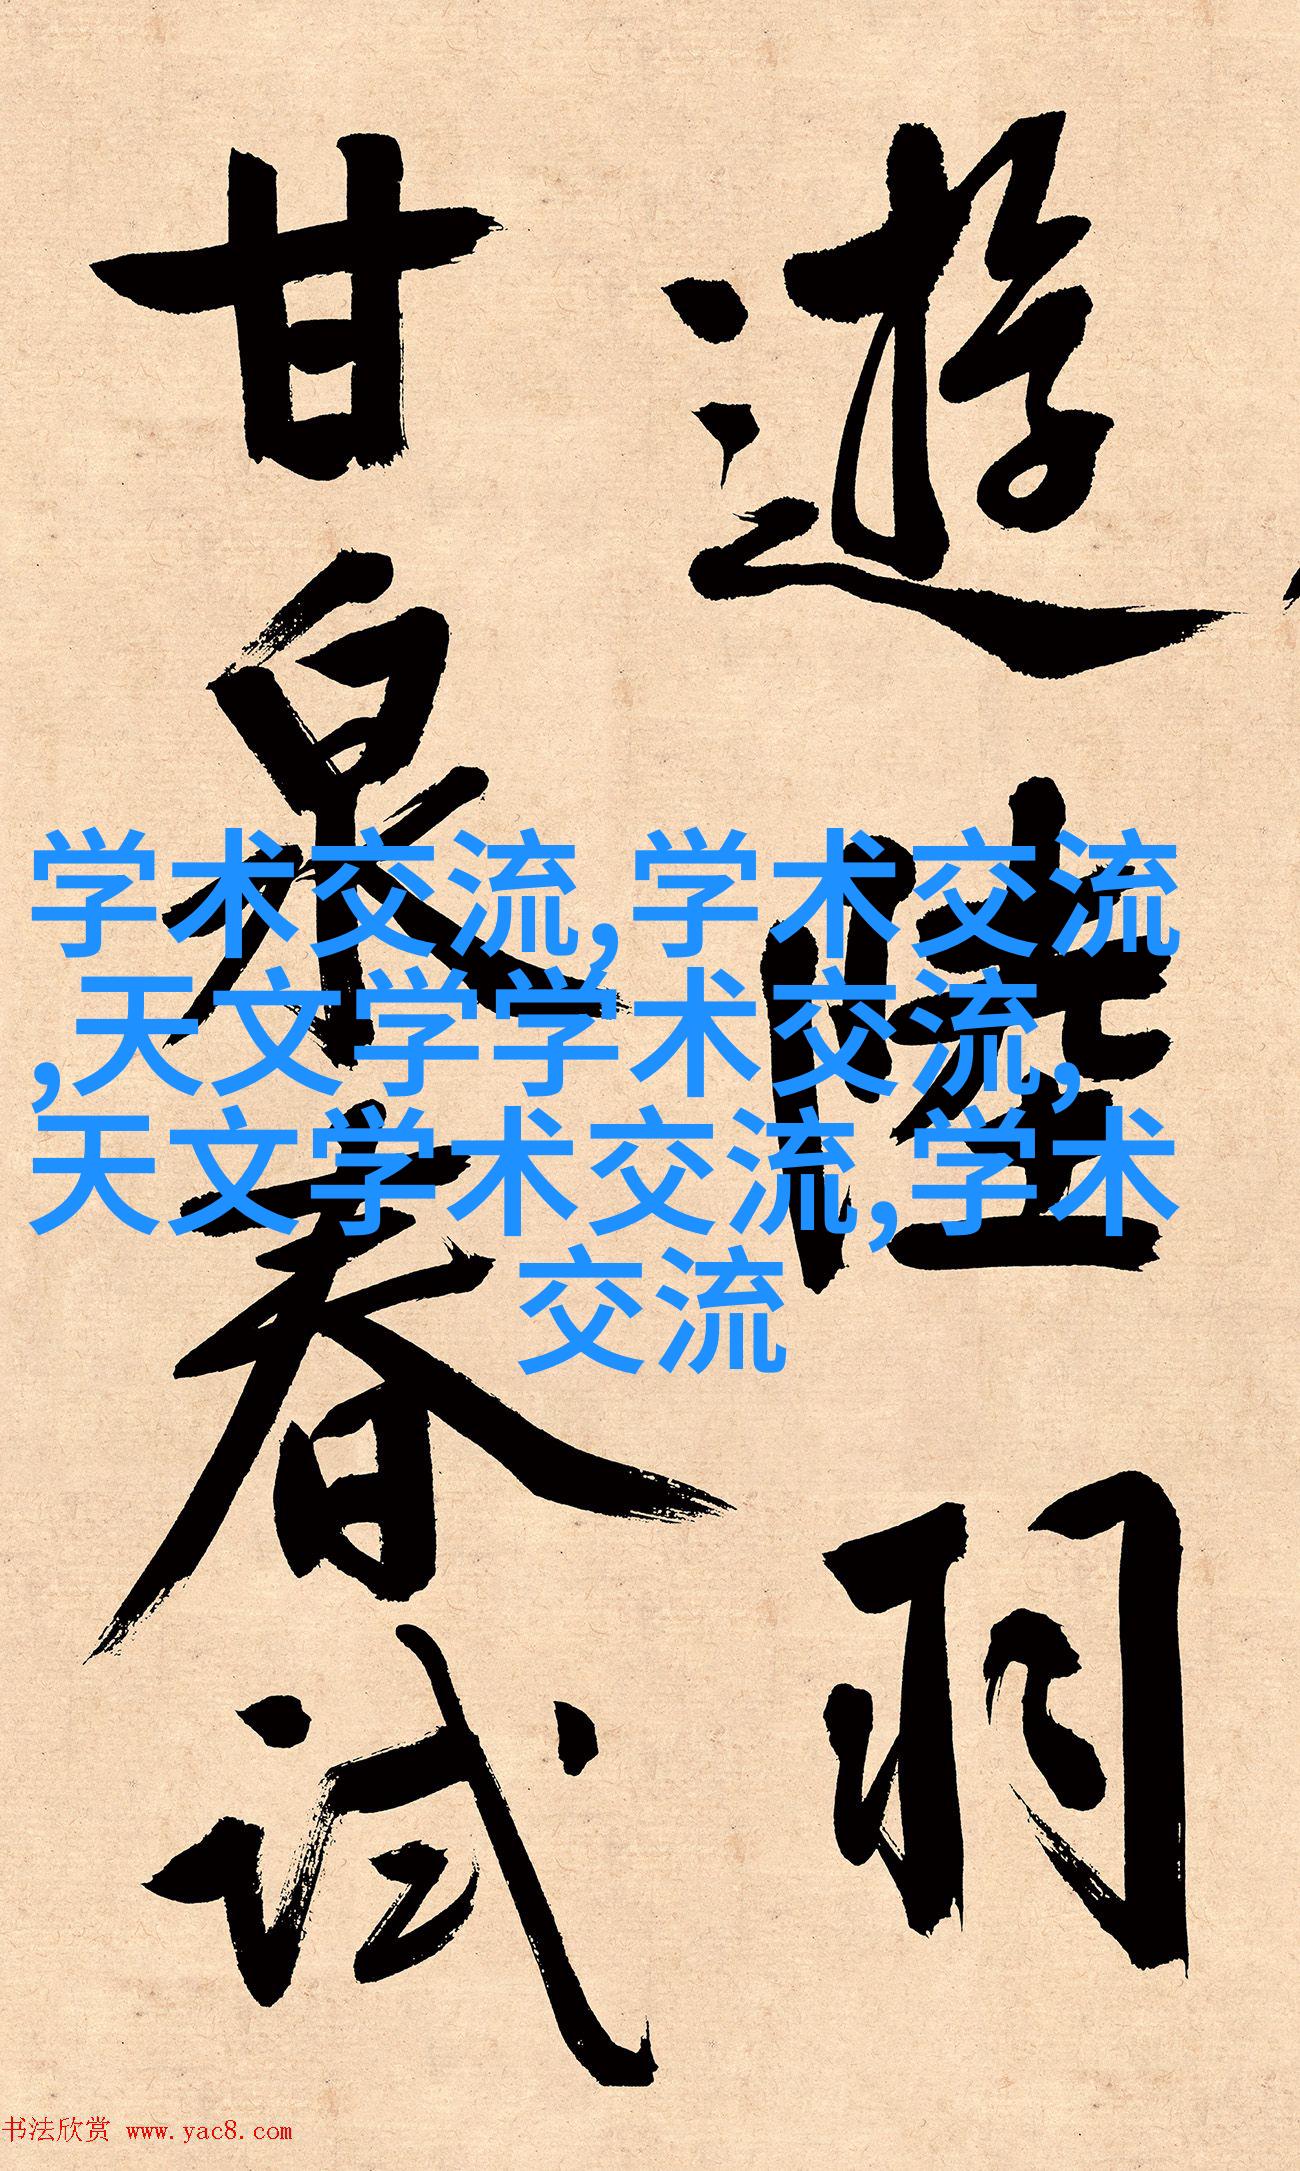 遊陸羽
甘泉春試
学术交流,学术交流
,天文学学术交流,
天文学术交流,学术
交流
书法欣赏 www.yac8.com